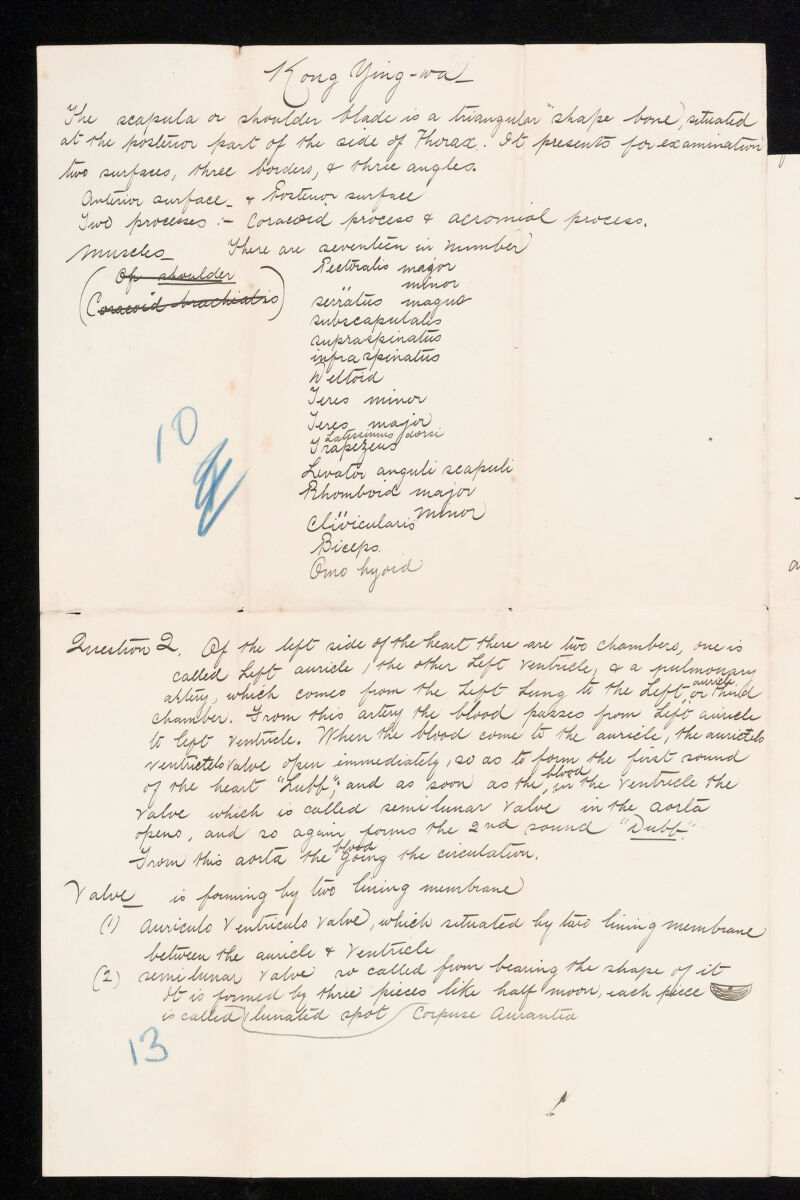 Kong Ying-wa
The scapula or shoulder blade is a triangular shape bone, situated
at the posterior part of the side of Thorax. It presents for examination
two surfaces, three borders, & three angles.
Anterior surface & Posterior surface
Two processes :- Coracoid process & acromial process.
Muscles There are seventeen in number
Of shoulder
Coracoid brachialis
Pectoralis magor
" minor
serratus magnus
subscapulalis
supraspinatus
infraspinatus
Deltoid
Teres minor
Teres major
Latissimus dorsi
Trapezeus
Levator anguli scapuli
Rhomboid major
" minor
Clivicularis
Biceps
Omo hyoid
10
Question 2. Of the left side of the heart there are two chambers, one is
called Left auricle, the other Left ventricle, & a pulmonary
artery, which comes from the Left Lung to the Left auricle or third
chamber. From this artery the blood passes from Left auricle
to left ventricle. When the blood come to the auricle, the aurictelo
ventrictelo valve open immediately, so as to form the first sound
of the heart "Lubb"; and as soon as the blood in the ventricle the
valve which is called semi lunar valve in the aorta
opens, and so again forms the 2nd sound "Dubb".
From this aorta the blood going the circulation.
Valve is forming by two lining membrane
(1) auriculo ventriculo valve, which situated by two lining membrane
between the auricle & ventricle
(2) semi lunar valve so called from bearing the shape of it
It is formed by three pieces like half moon, each piece
is called lunated spot Corpuse Aurantea
13